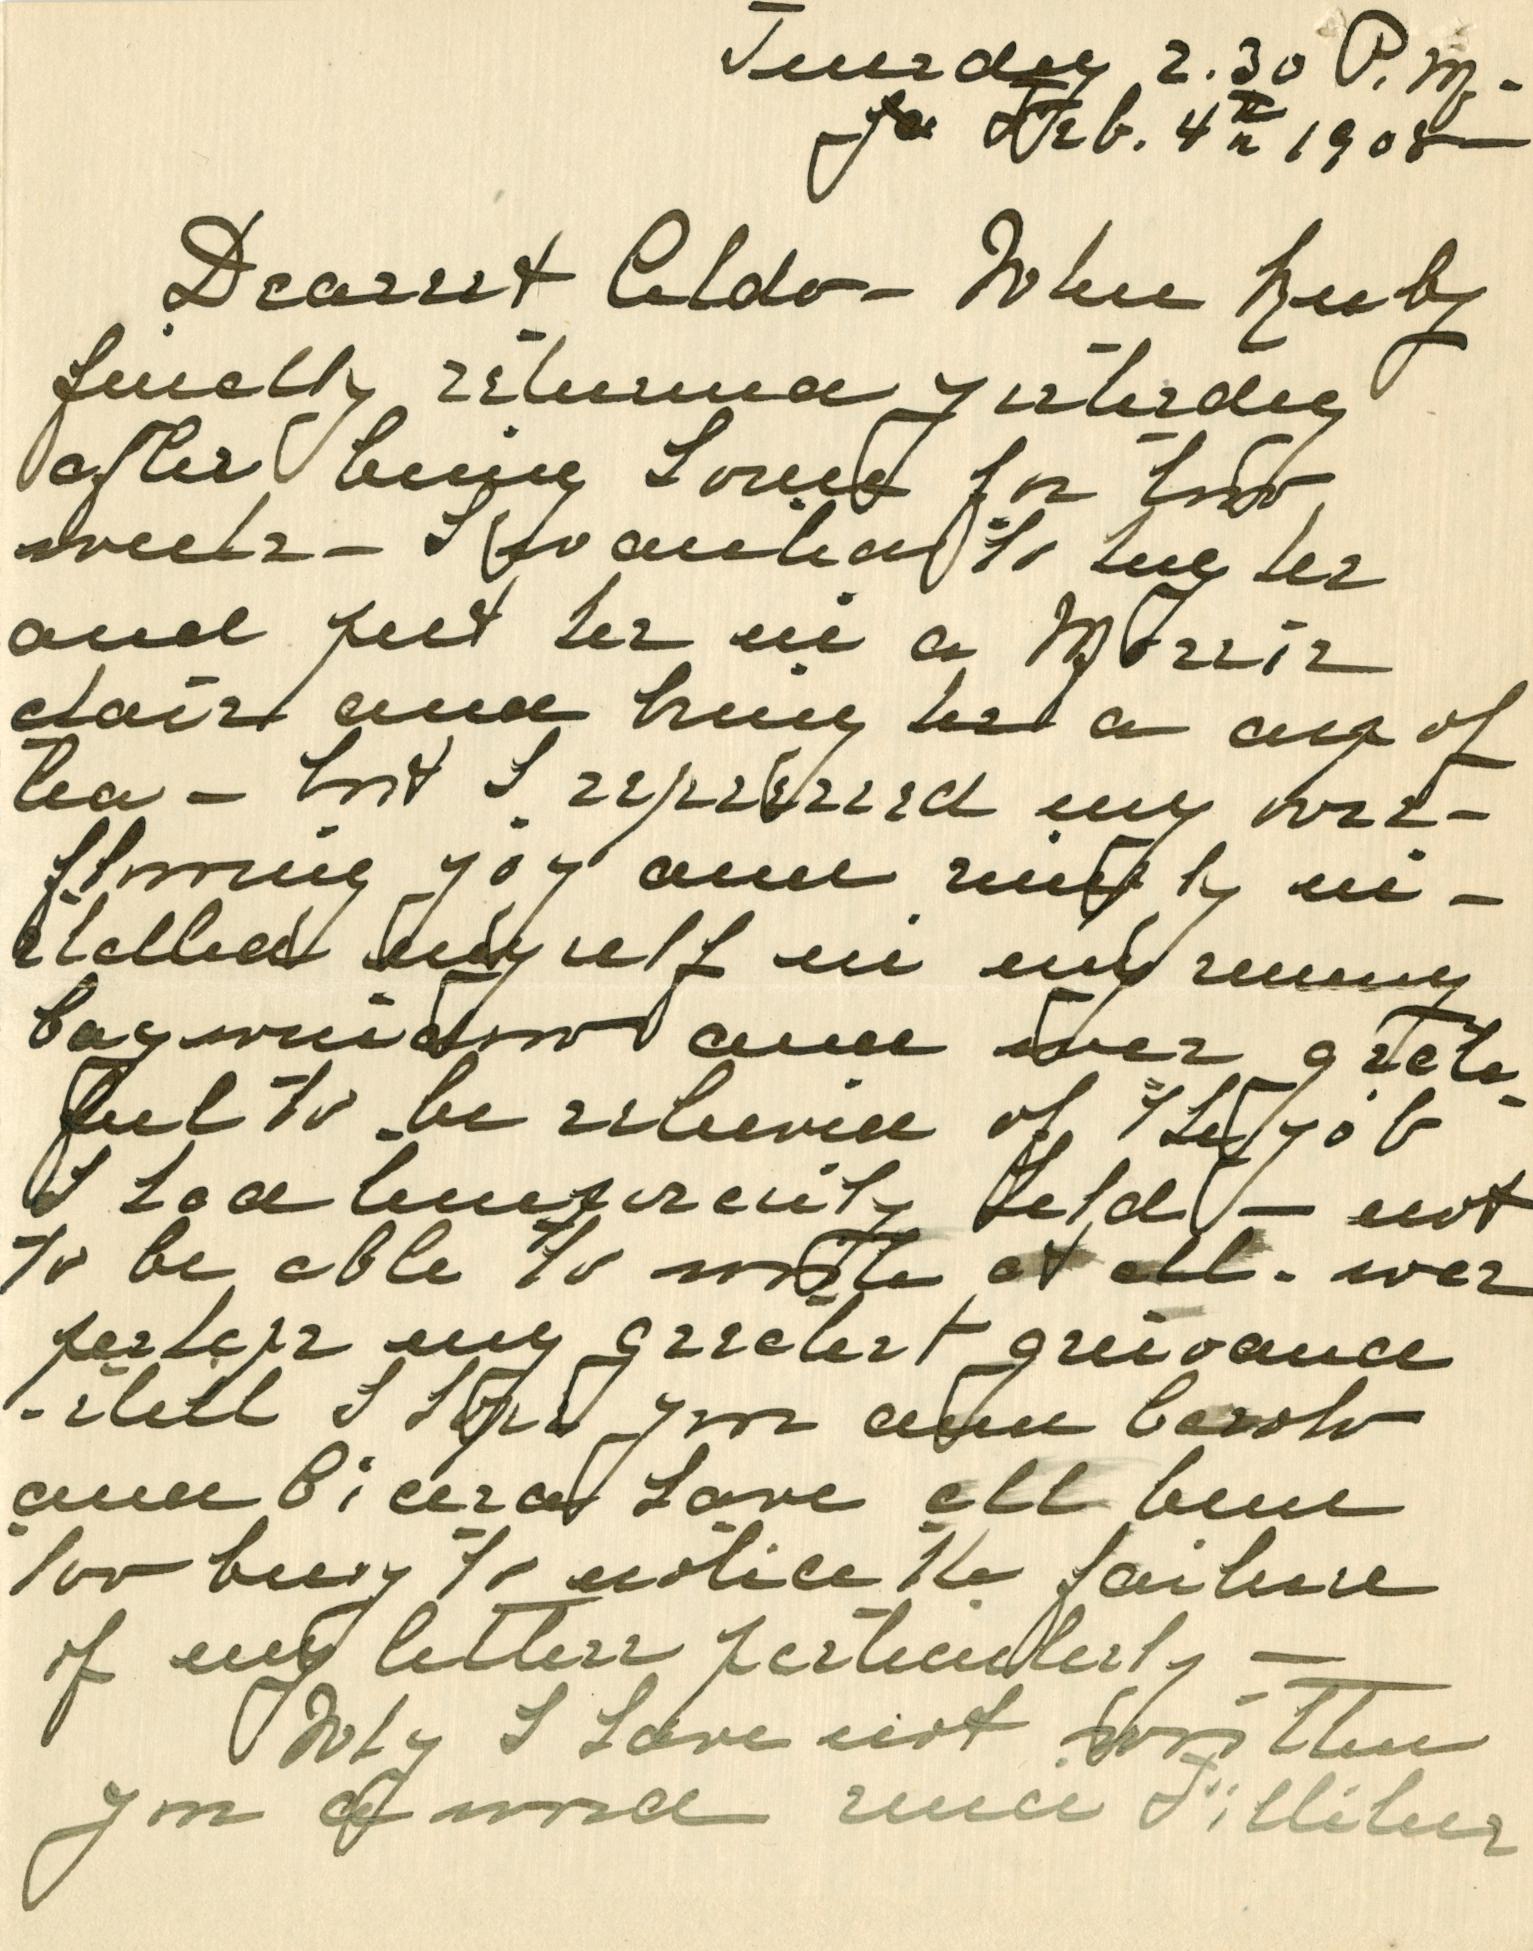 Tuesday 2.30 P.M.
Feb. 4th 1908—
Dearest Aldo— When Ruby
finally returned yesterday
after being gone for two
weeks— I wanted to hug her
and put her in a Morris
chair and bring her a cup of
tea— but I repressed my over-
flowing joy and simply in-
stalled myself in my sunny
bay window and was grate-
ful to be relieved of the job
I had temporarily held— not
to be able to write at all. was
perhaps my greatest grievance
-still I hope you and Carolo
and have all been
too busy to notice the failure
of my letters particularly—
Why I have not written
you a word since